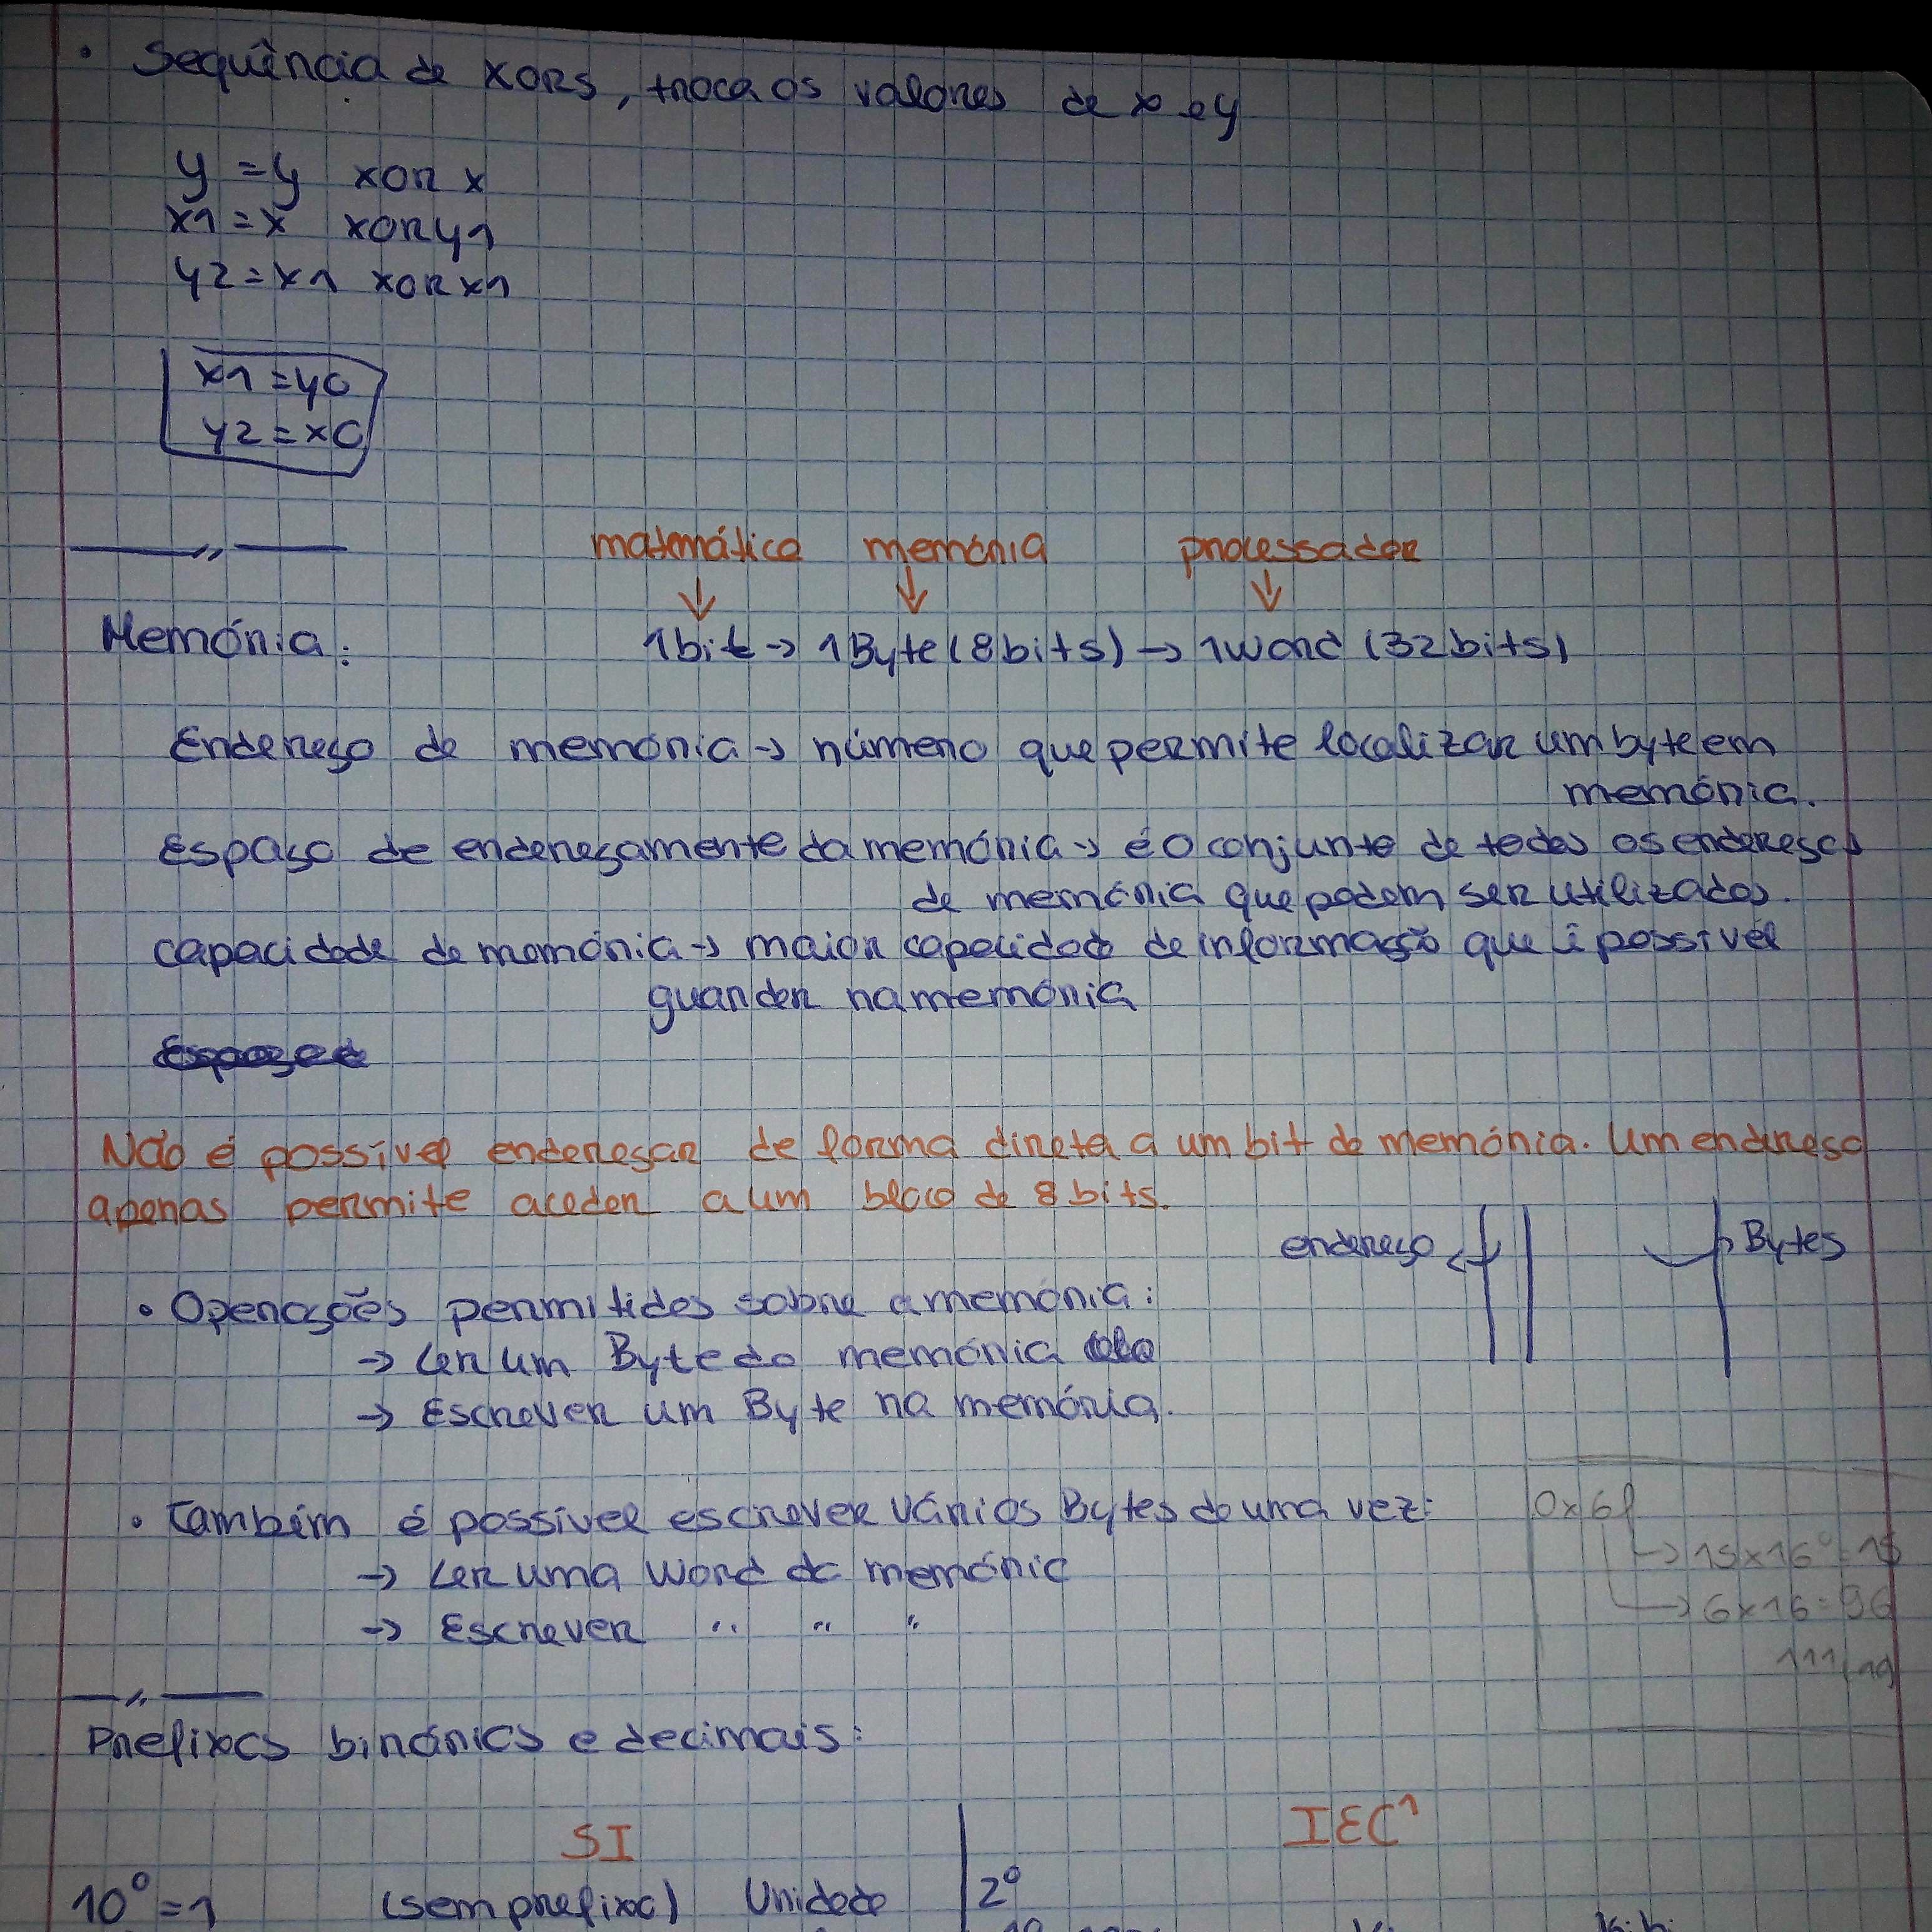 • Sequência de XORS, troca os valores de x e y
y = y xor x
x1 = x xor y1
y2 = x1 xor x1
x1 = y0
y2 = x0
matemática memória processador
Memória: 1 bit → 1 Byte (8 bits) → 1 Word (32 bits)
Endereço de memória → número que permite localizar um byte em
memória.
Espaço de endereçamento da memória → é o conjunto de todos os endereços
de memória que podem ser utilizados.
capacidade de memória → maior capacidade de informação que é possível
guardar na memória
Não é possível endereçar de forma direta a um bit de memória. Um endereço
apenas permite aceder a um bloco de 8 bits.
endereço Bytes
• Operações permitidas sobre a memória:
→ Ler um Byte da memória
→ Escrever um Byte na memória.
• Também é possível escrever vários Bytes de uma vez:
0x6f
→ 15x16⁰=15
→ Ler uma Word da memória
→ 6x16=96
→ Escrever " " "
111
Prefixos binários e decimais:
SI IEC¹
10⁰=1 (sem prefixo) Unidade 2⁰